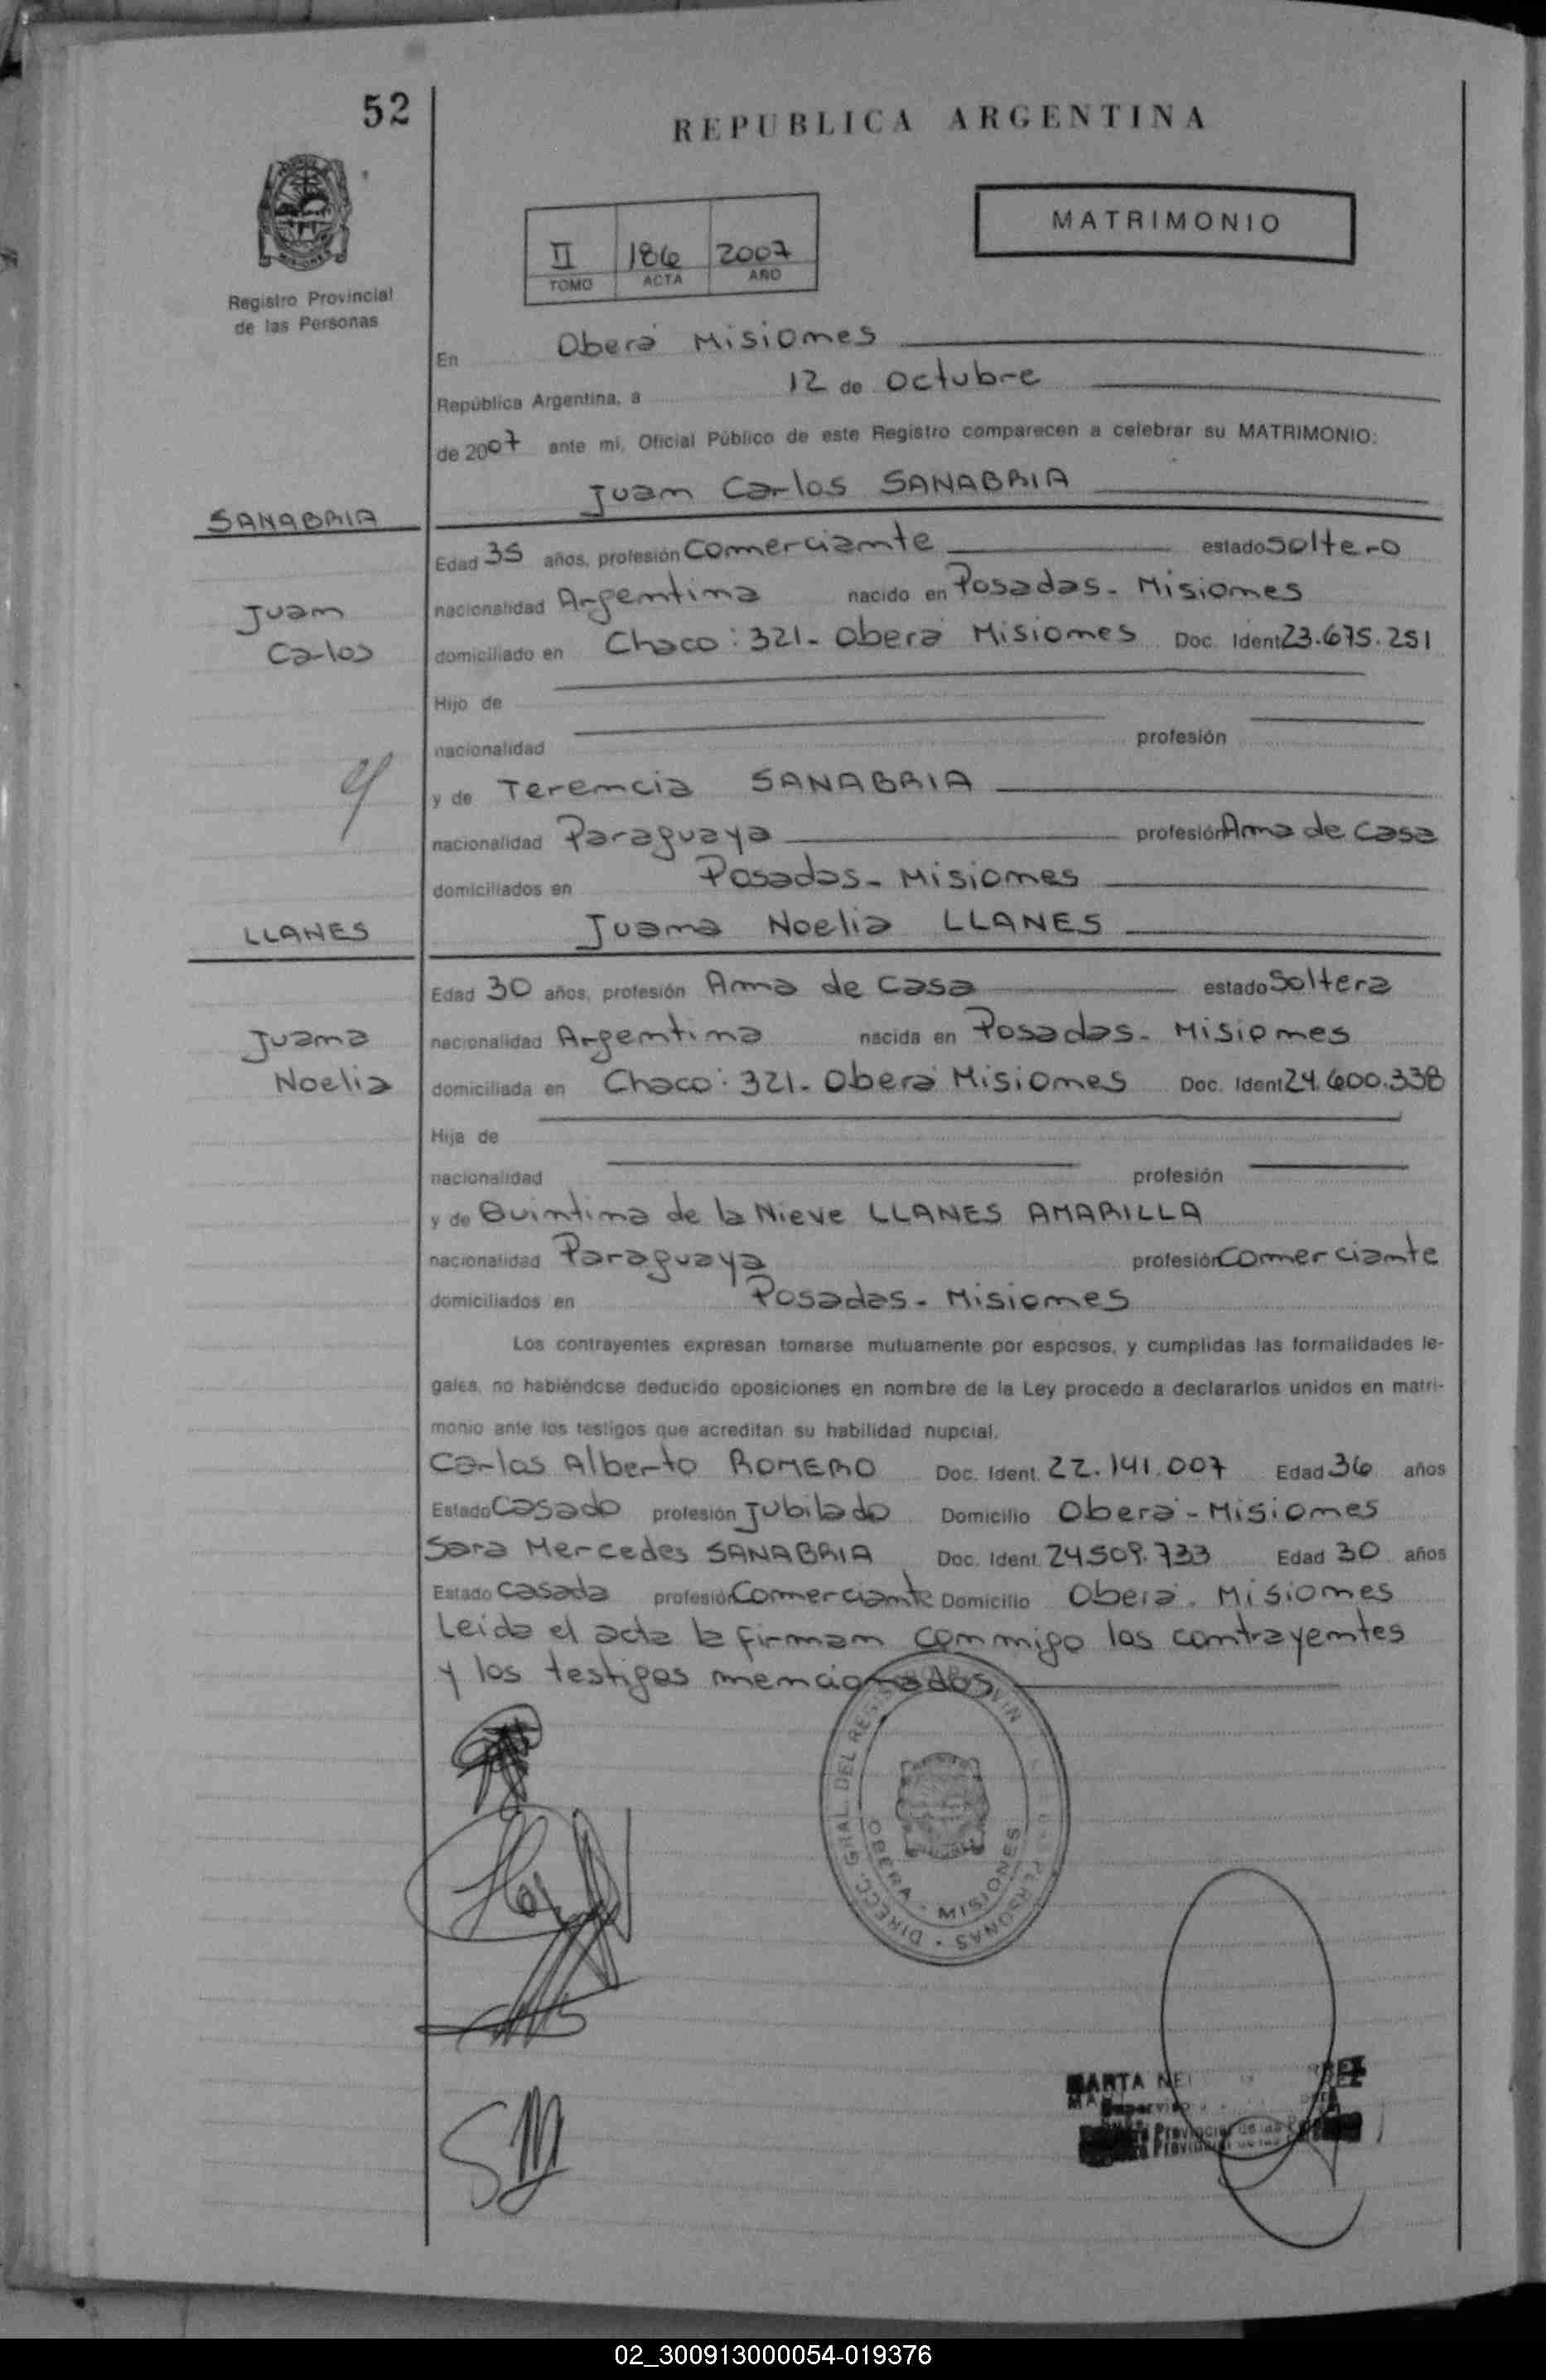 52
REPUBLICA ARGENTINA
MATRIMONIO
II 186 2007
TOMO ACTA AÑO
MISIONES
Registro Provincial
de las Personas
En Oberá Misiones
República Argentina, a 12 de octubre
de 2007 ante mi, Oficial Público de este Registro comparecen a celebrar su MATRIMONIO:
Juan Carlos SANABRIA
SANABRIA
Edad 35 años, profesión Comerciante estado soltero
Juan
nacionalidad Argentina nacido en Posadas - Misiones
Carlos
domiciliado en Chaco: 321 - Oberá Misiones Doc. Ident 23.675.251
Hijo de
nacionalidad profesión
y de Terencia SANABRIA
nacionalidad Paraguaya profesión Ama de Casa
domiciliados en Posadas - Misiones
LLANES
Juana Noelia LLANES
Edad 30 años, profesión Ama de Casa estado Soltera
Juana
nacionalidad Argentina nacida en Posadas - Misiones
Noelia
domiciliada en Chaco: 321 - Oberá Misiones Doc. Ident 24.600.338
Hija de
nacionalidad profesión
y de Quintina de la Nieve LLANES AMARILLA
nacionalidad Paraguaya profesión Comerciante
domiciliados en Posadas - Misiones
Los contrayentes expresan tomarse mutuamente por esposos, y cumplidas las formalidades le-
gales, no habiéndose deducido oposiciones en nombre de la Ley procedo a declararlos unidos en matri-
monio ante los testigos que acreditan su habilidad nupcial.
Carlos Alberto ROMERO Doc. Ident. 22.141.007 Edad 36 años
Estado Casado profesión Jubilado Domicilio Oberá - Misiones
Sara Mercedes SANABRIA Doc. Ident. 24509.733 Edad 30 años
Estado Casada profesión Comerciante Domicilio Oberá - Misiones
Leida el acta la firman conmigo los contrayentes
y los testigos mencionados
DIRECC. GRAL. DEL PERSONAS
OBERA - MISIONES
MARTA
02_300913000054-019376